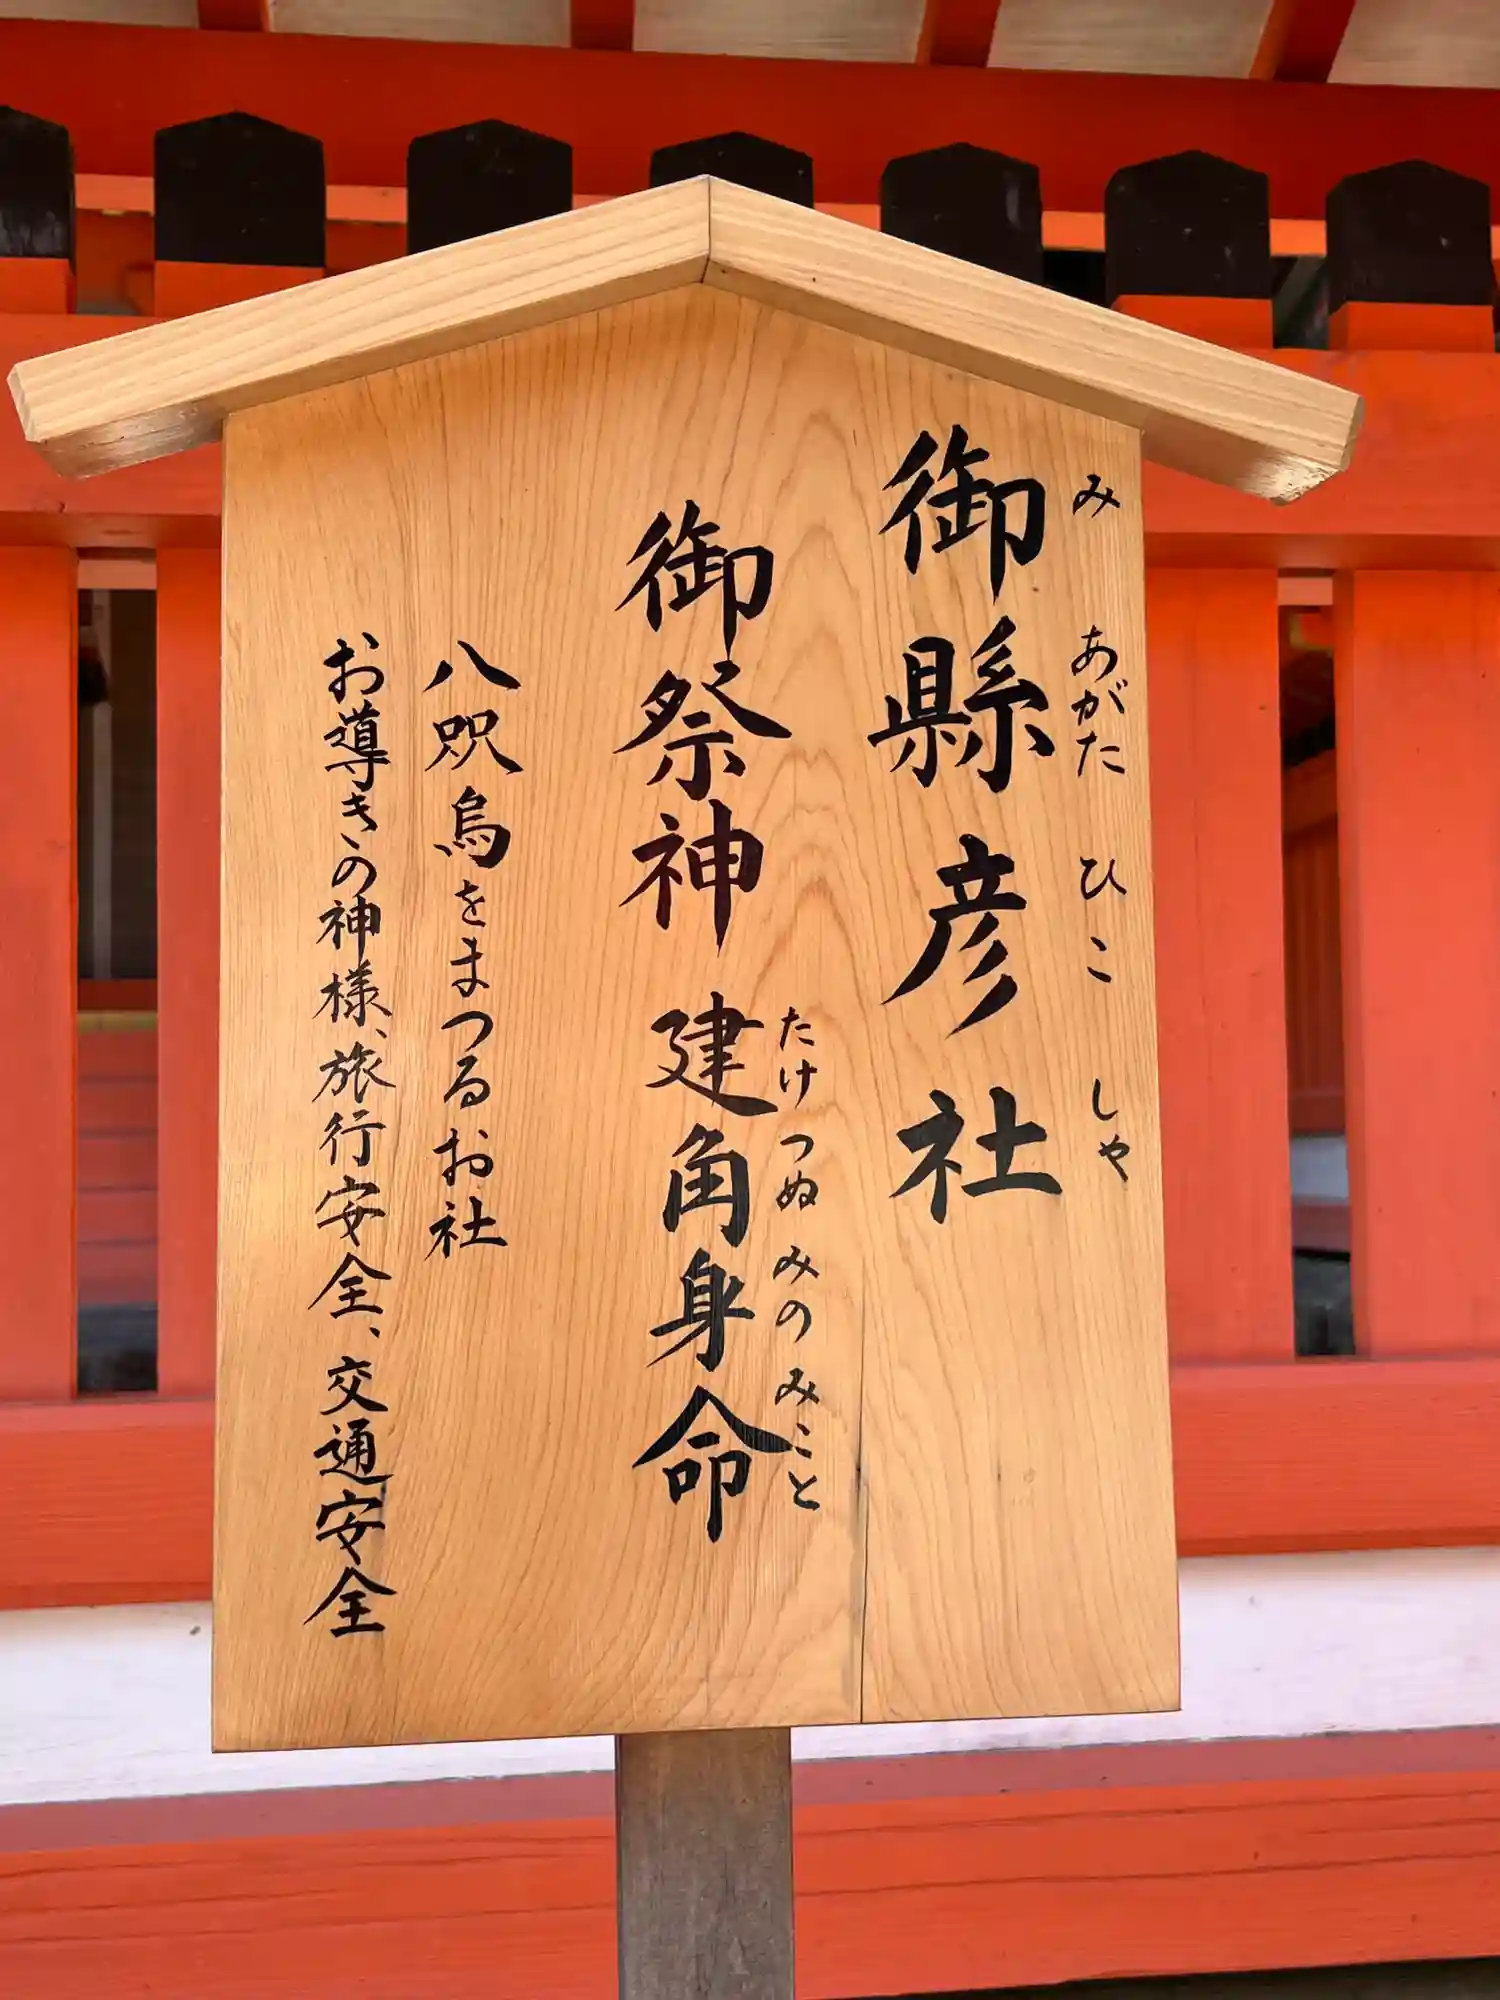 御縣彦社
み あがた ひこ しゃ
御祭神 建角身命
たけつぬみのみこと
八咫烏をまつるお社
お導きの神様、旅行安全、交通安全